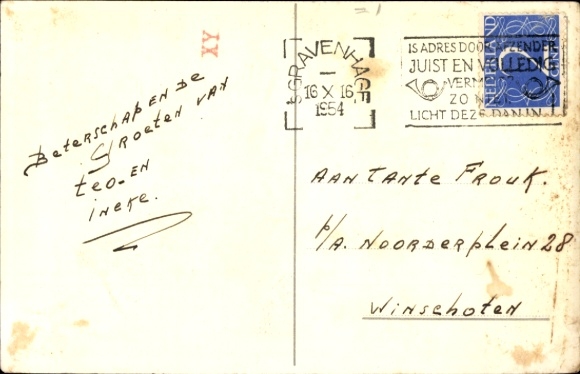 XY
'S GRAVENHAGE
16 X 16
1954
IS ADRES DOOR AFZENDER
JUIST EN VOLLEDIG
VERM
ZO
LICHT DEZE DAN IN
NEDERLAND
Beterschap en de
Groeten van
teo-en
ineke.
Aan Tante Frouk.
p/a. Noorderplein 28
Winschoten